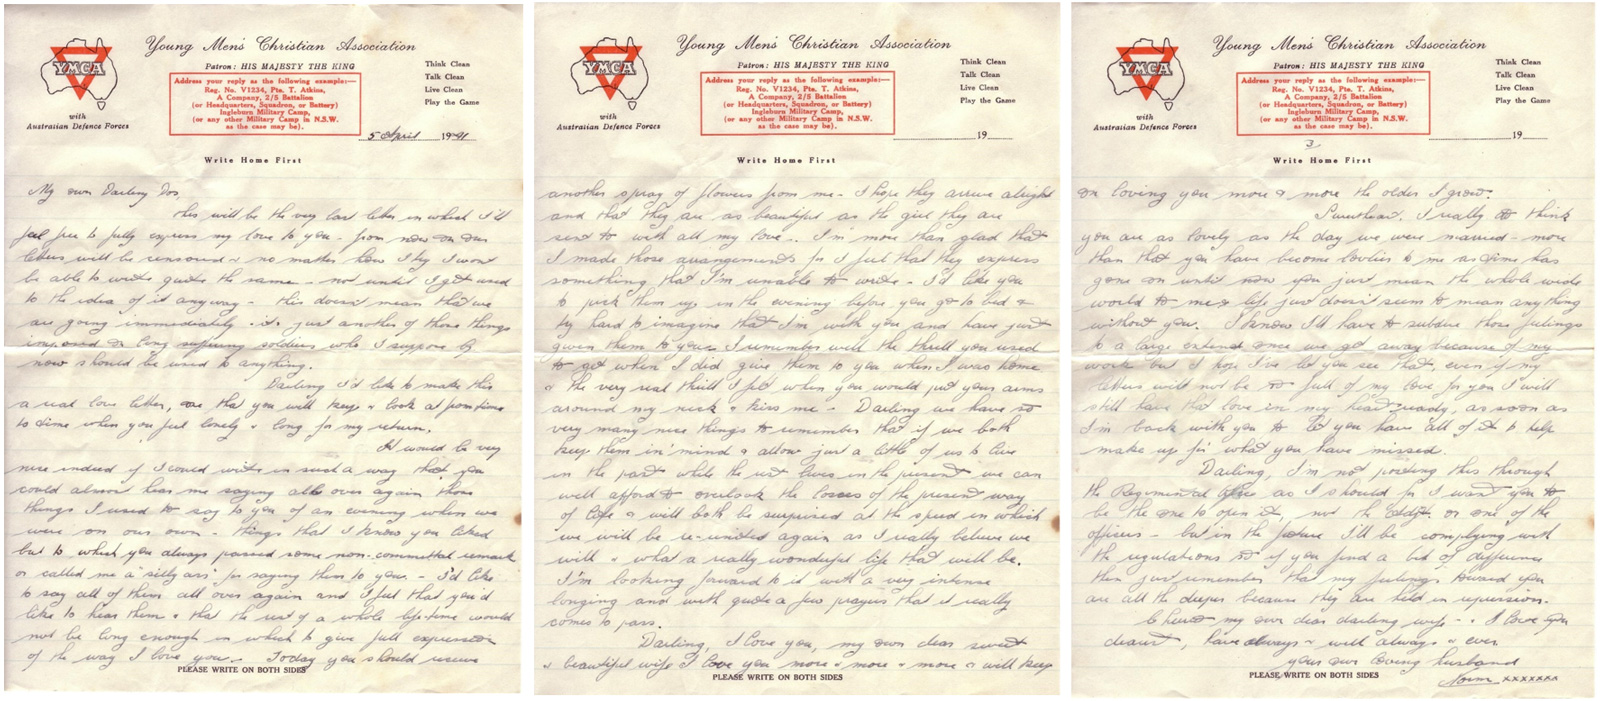 Young Men's Christian Association
Patron: HIS MAJESTY THE KING
YMCA
with
Australian Defence Forces
Address your reply as the following example:—
Reg. No. V1234, Pte. T. Atkins,
A Company, 2/5 Battalion
(or Headquarters, Squadron, or Battery)
Ingleburn Military Camp,
(or any other Military Camp in N.S.W.
as the case may be).
Think Clean
Talk Clean
Live Clean
Play the Game
5 April 1941
Write Home First
My own Darling Dos,
this will be the very last letter in which I'll
feel free to fully express my love to you - from now on our
letters will be censored & no matter how I try I won't
be able to write quite the same - not until I get used
to the idea of it anyway - this doesn't mean that we
are going immediately - it's just another of those things
imposed on long suffering soldiers who I suppose by
now should be used to anything.
Darling I'd like to make this
a real love letter, one that you will keep & look at from time
to time when you feel lonely & long for my return.
It would be very
nice indeed if I could write in such a way that you
could almost hear me saying all over again those
things I used to say to you of an evening when we
were on our own - things that I know you liked
but to which you always passed some non-committal remark
or called me a "silly ass" for saying them to you. - I'd like
to say all of them all over again and I feel that you'd
like to hear them & that the rest of a whole life-time would
not be long enough in which to give full expression
of the way I love you. Today you should receive
PLEASE WRITE ON BOTH SIDES
Young Men's Christian Association
Patron: HIS MAJESTY THE KING
YMCA
with
Australian Defence Forces
Address your reply as the following example:—
Reg. No. V1234, Pte. T. Atkins,
A Company, 2/5 Battalion
(or Headquarters, Squadron, or Battery)
Ingleburn Military Camp,
(or any other Military Camp in N.S.W.
as the case may be).
Think Clean
Talk Clean
Live Clean
Play the Game
19
Write Home First
another spray of flowers from me - I hope they arrive alright
and that they are as beautiful as the girl they are
sent to with all my love .. I'm more than glad that
I made those arrangements for I feel that they express
something that I'm unable to write - I'd like you
to pick them up in the evening before you go to bed &
try hard to imagine that I'm with you and have just
given them to you. I remember well the thrill you used
to get when I did give them to you when I was home
& the very real thrill I felt when you would put your arms
around my neck & kiss me - Darling we have so
very many nice things to remember that if we both
keep them in mind & allow just a little of us to live
in the past while the rest lives in the present we can
well afford to overlook the losses of the present way
of life & will both be surprised at the speed in which
we will be re-united again as I really believe we
will - what a really wonderful life that will be.
I'm looking forward to it with a very intense
longing and with quite a few prayers that it really
comes to pass.
Darling, I love you, my own dear sweet
& beautiful wife I love you more & more & more & will keep
PLEASE WRITE ON BOTH SIDES
Young Men's Christian Association
Patron: HIS MAJESTY THE KING
YMCA
with
Australian Defence Forces
Address your reply as the following example:—
Reg. No. V1234, Pte. T. Atkins,
A Company, 2/5 Battalion
(or Headquarters, Squadron, or Battery)
Ingleburn Military Camp,
(or any other Military Camp in N.S.W.
as the case may be).
Think Clean
Talk Clean
Live Clean
Play the Game
19
3
Write Home First
on loving you more & more the older I grow.
Sweetheart, I really do think
you are as lovely as the day we were married - more
than that you have become lovlier to me as time has
gone on until now you just mean the whole wide
world to me & life just doesn't seem to mean anything
without you. I know I'll have to subdue those feelings
to a large extend once we get away because of my
work but I hope I've let you see that, even if my
letters will not be so full of my love for you I will
still have that love in my heart ready, as soon as
I'm back with you to let you have all of it to help
make up for what you have missed.
Darling, I'm not posting this through
the Regimental Office as I should for I want you to
be the one to open it, not the Adjt. or one of the
officers - but in the future I'll be complying with
the regulations so if you find a bit of difference
then just remember that my feelings toward you
are all the deeper because they are held in repression.
Cheerio my own dear darling wife - I love you
dearest, have always & will always & ever.
your own loving husband
Norm xxxxxxx
PLEASE WRITE ON BOTH SIDES